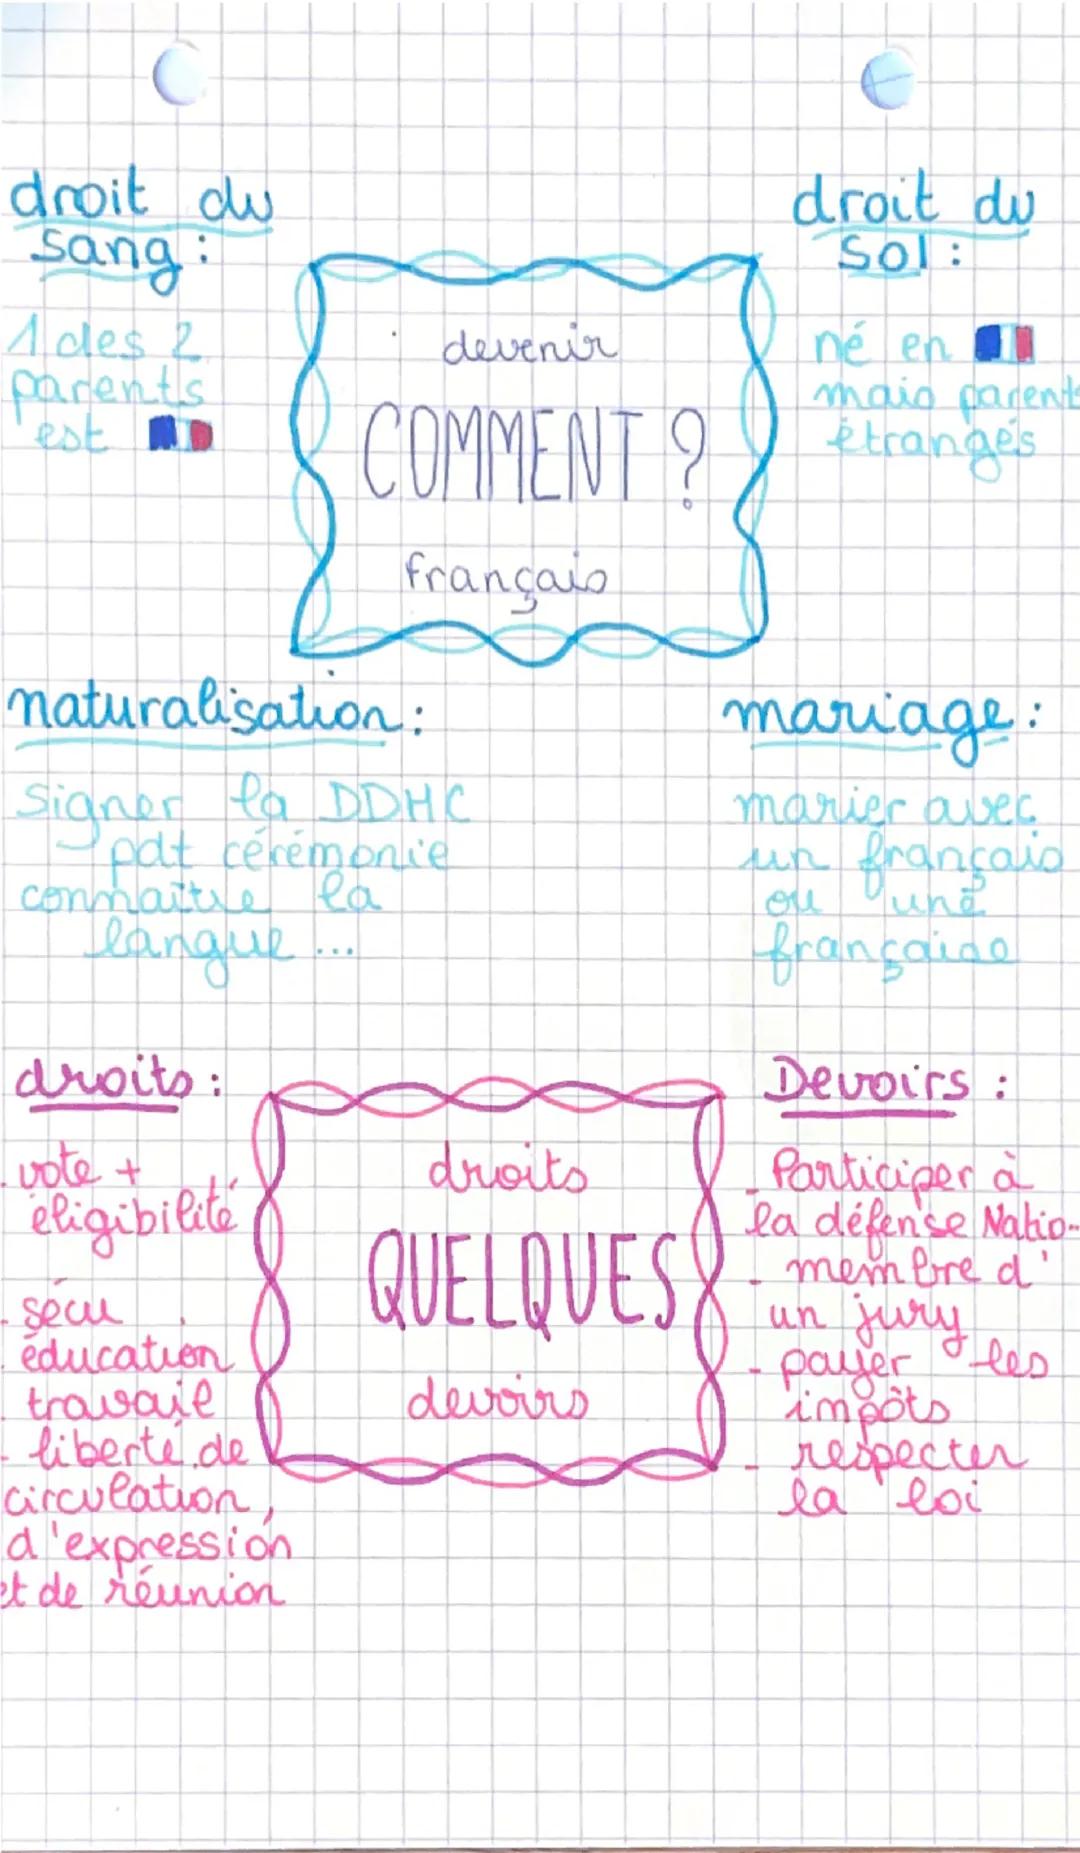 droit du
sang :
1 des 2
parents
est
devenir
COMMENT ?
français
droit du
sol :
né en
mais parents
étrangés
naturalisation :
signer la DDHC
pdt cérémonie
connaître la
langue ...
mariage :
marier avec
un français
ou une
française
droits :
- vote +
éligibilité
- sécu
- éducation
- travail
- liberté de
circulation,
d'expression
et de réunion
droits
QUELQUES
devoirs
Devoirs :
- Participer à
la défense Natio-
- membre d'
un jury
- payer les
impôts
- respecter
la loi